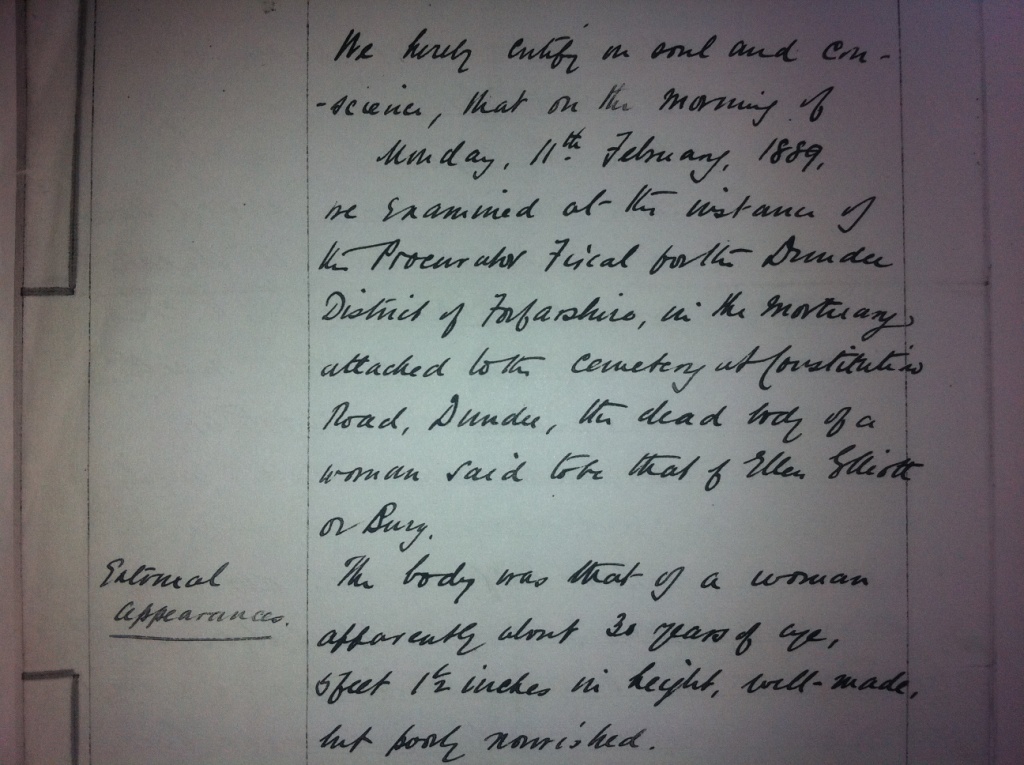 We hereby certify on soul and con-
-science, that on the morning of
Monday, 11th. February, 1889,
we Examined at the instance of
the Procurator Fiscal for the Dundee
District of Forfarshire, in the Mortuary
attached to the Cemetery at Constitution
Road, Dundee, the dead body of a
woman said to be that of Ellen Elliott
or Bury.
External
appearances.
The body was that of a woman
apparently about 30 years of age,
5 feet 1½ inches in height, well-made,
but poorly nourished.